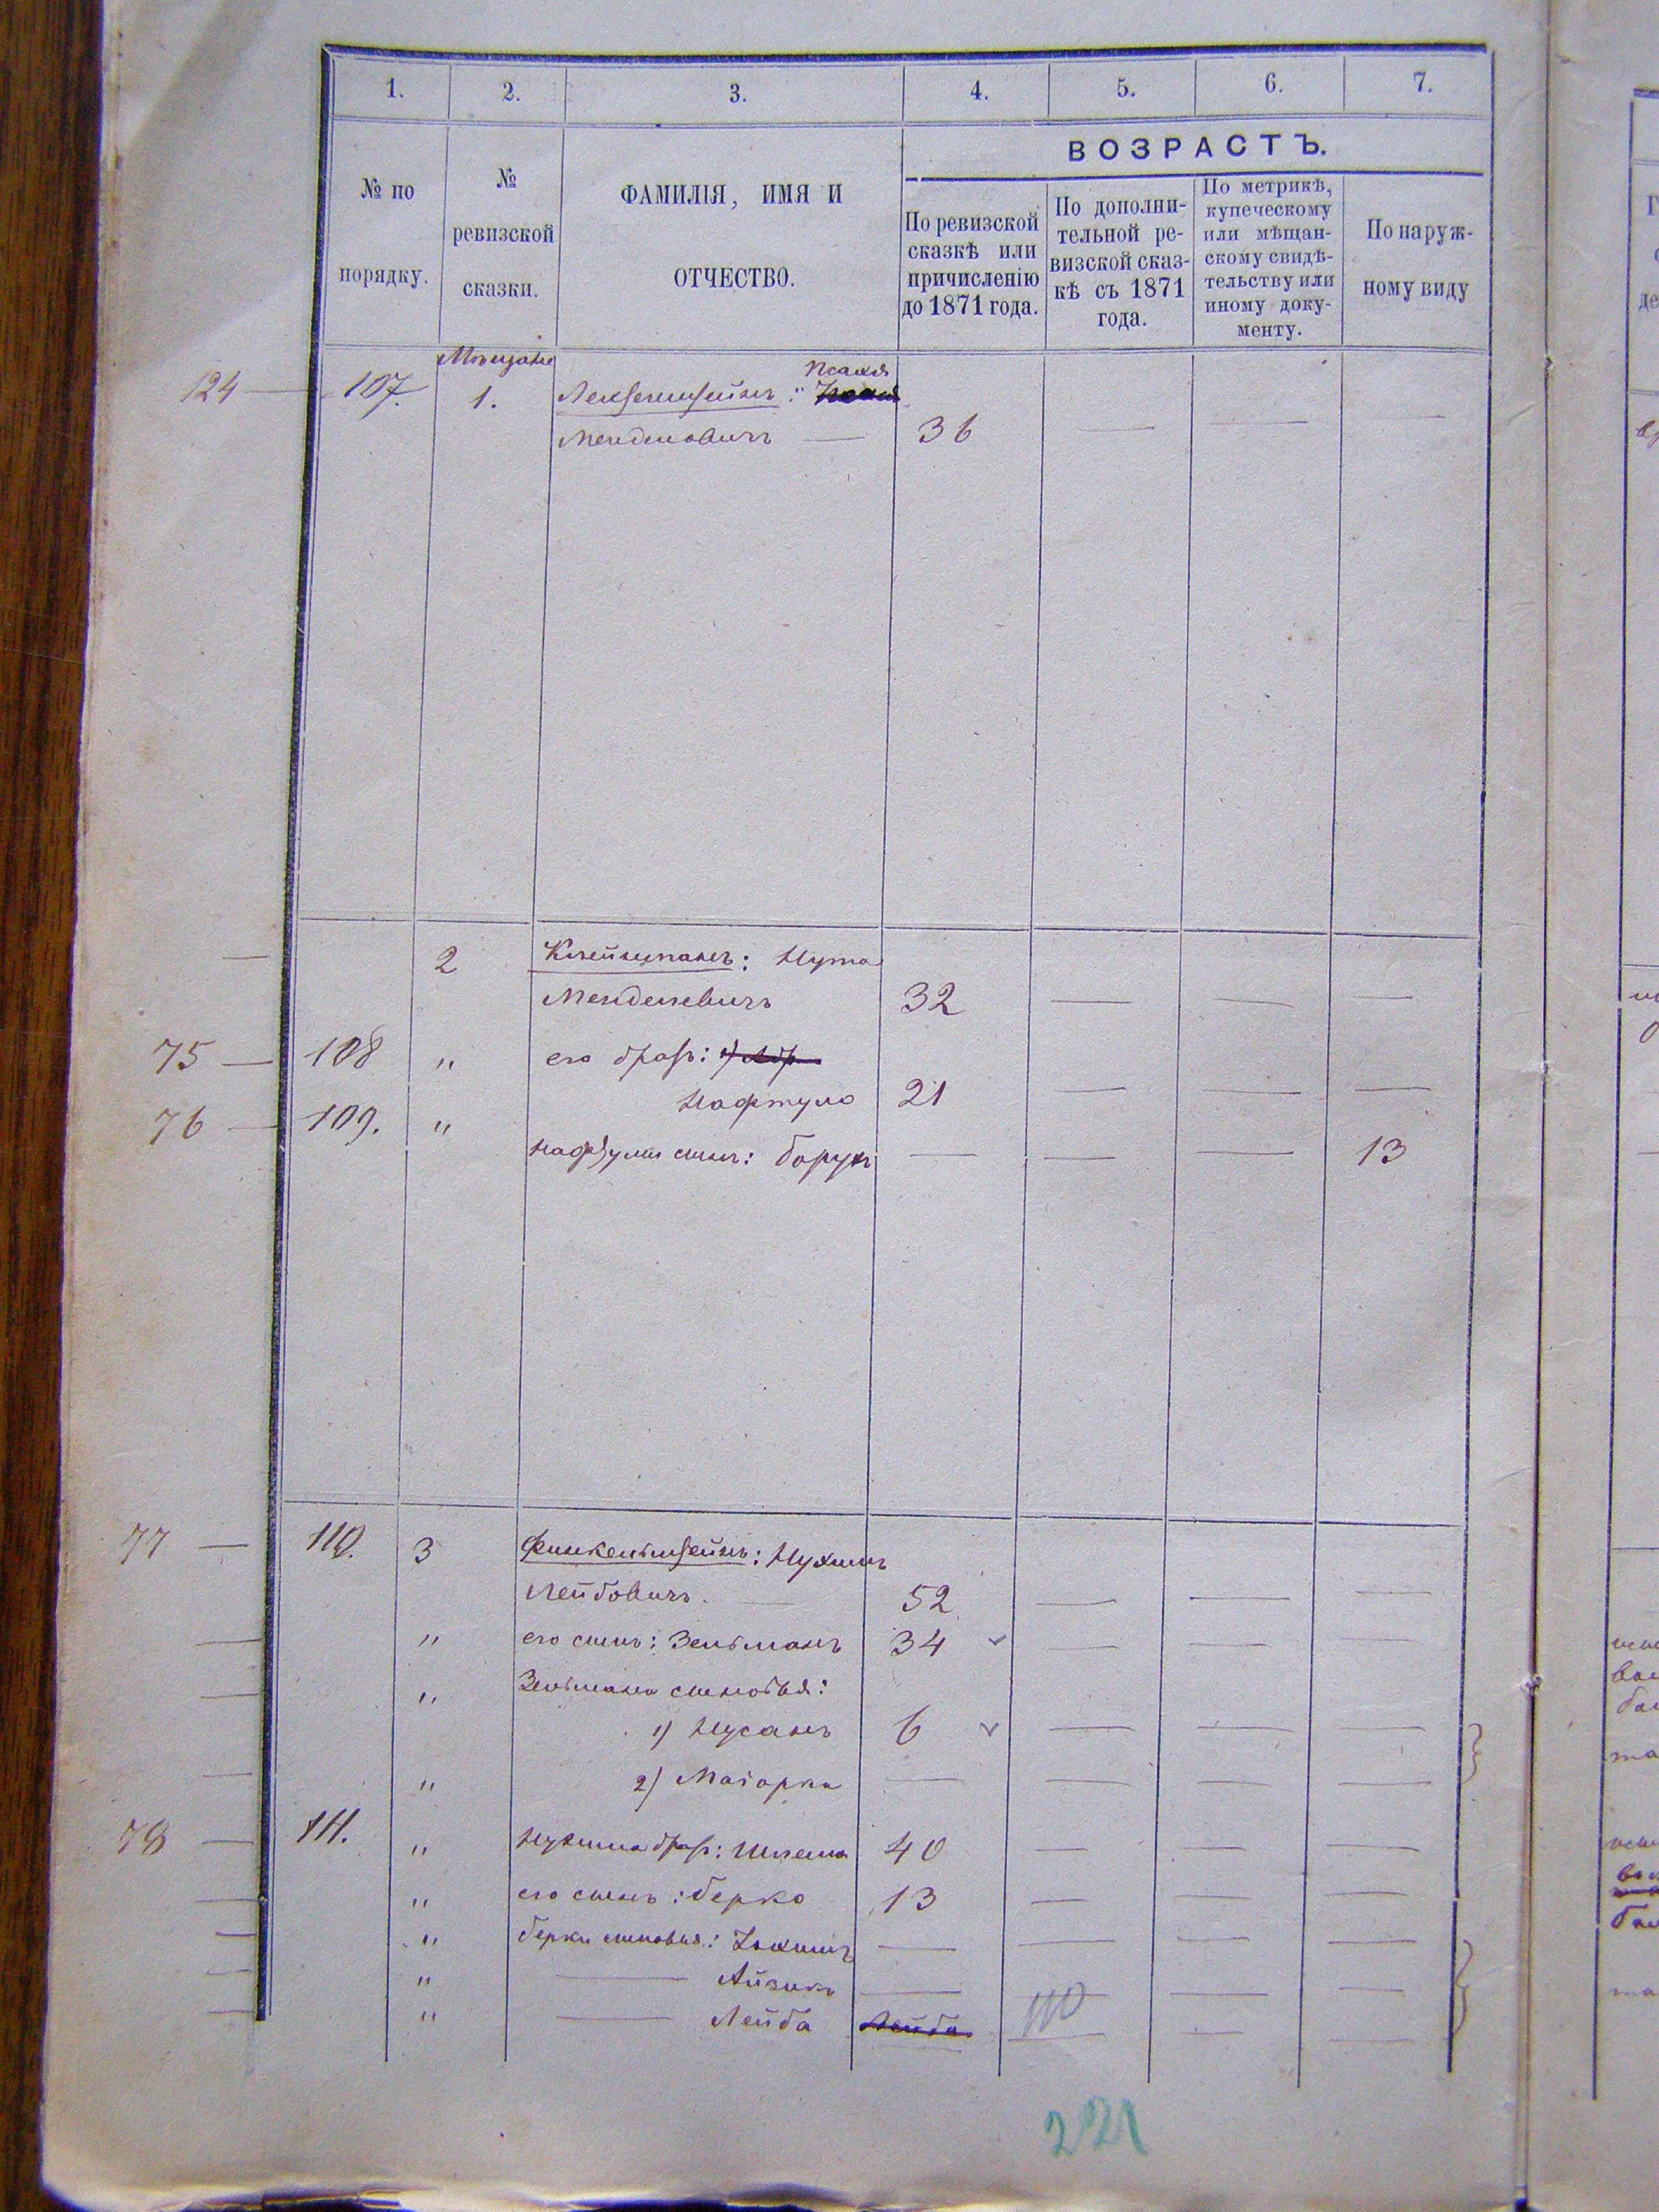 1. 2. 3. 4. 5. 6. 7.
№ по
порядку.
№
ревизской
сказки.
ФАМИЛІЯ, ИМЯ И
ОТЧЕСТВО.
ВОЗРАСТЪ.
По ревизской
сказкѣ или
причисленію
до 1871 года.
По дополни-
тельной ре-
визской сказ-
кѣ съ 1871
года.
По метрикѣ,
купеческому
или мѣщан-
скому свидѣ-
тельству или
иному доку-
менту.
По наруж-
ному виду
Мѣщане
124 — 107. 1.
Менделовичъ — 36 — — —
— 2 Клейнманъ: Нута
Менделевичъ 32 — — —
75 — 108 " его братъ:
Нафтула 21 — — —
76 — 109. "
Нафтулы сынъ: Борухъ — — — 13
77 — 110. 3 Финкельштейнъ: Нухимъ
Лейбовичъ. — 52 — — —
— " его сынъ: Зельманъ 34 — — —
— " Зельмана сыновья:
1) Нусанъ 6 — — —
— " 2) — — — —
78 — 111. " Нухима братъ: Шлема 40 — — —
— " его сынъ: Берко 13 — — —
— " Берки сыновья: — — — —
— " — Айзикъ — — — —
— " — Лейба Лейба — — —
110
221